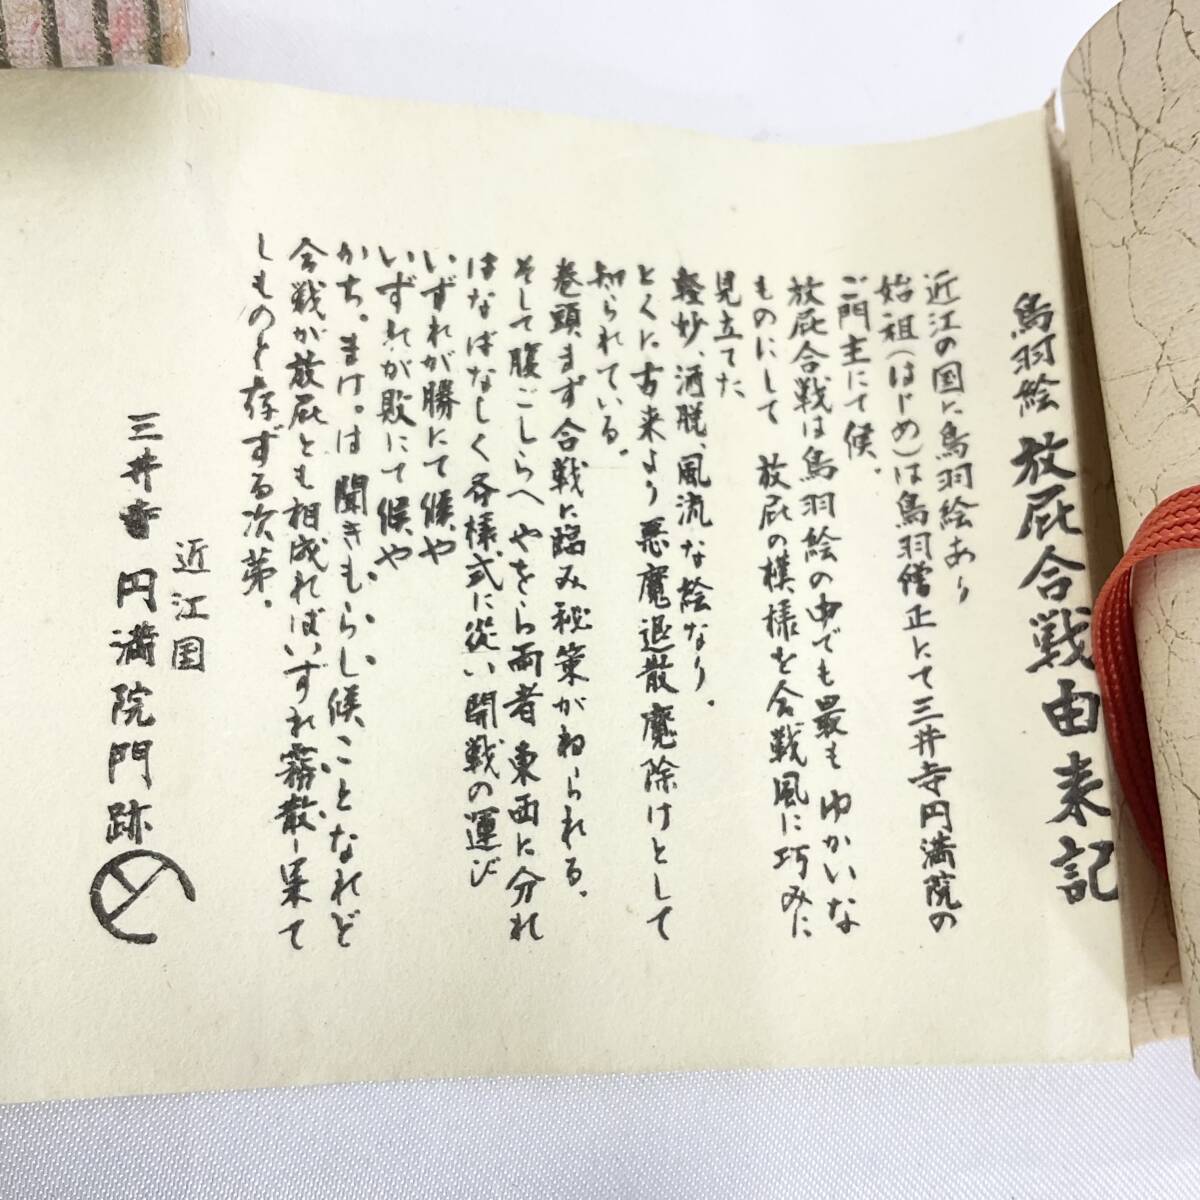 鳥羽絵 放屁合戦由来記
近江の国に鳥羽絵あり
始祖(はじめ)は鳥羽僧正にて三井寺円満院の
ご門主にて候。
放屁合戦は鳥羽絵の中でも最もゆかいな
ものにして 放屁の模様を合戦風に巧みに
見立てた
軽妙、洒脱、風流な絵なり。
とくに古来より悪魔退散魔除けとして
知られている。
巻頭まず合戦に臨み秘策がねられる。
そして腹ごしらへ やをら両者東西に分れ
はなばなしく各様式に従い開戦の運び
いずれが勝にて候や
いずれが敗にて候や
かち。まけ。は聞きもらし候ことなれど
合戦が放屁とも相成ればいずれ霧散し果て
しものと存ずる次第。
近江国
三井寺 円満院門跡